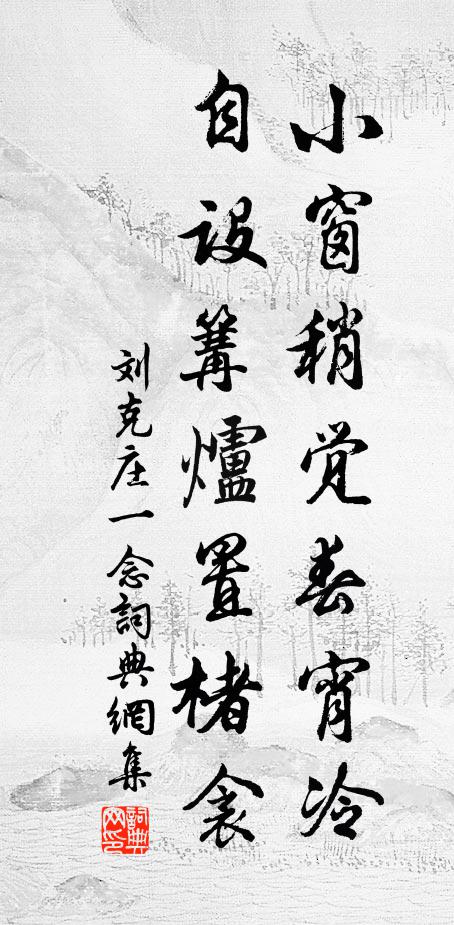 小窗稍觉春宵冷
自设篝爐置楮衾
刘克庄一念詞典網集
詞典網印